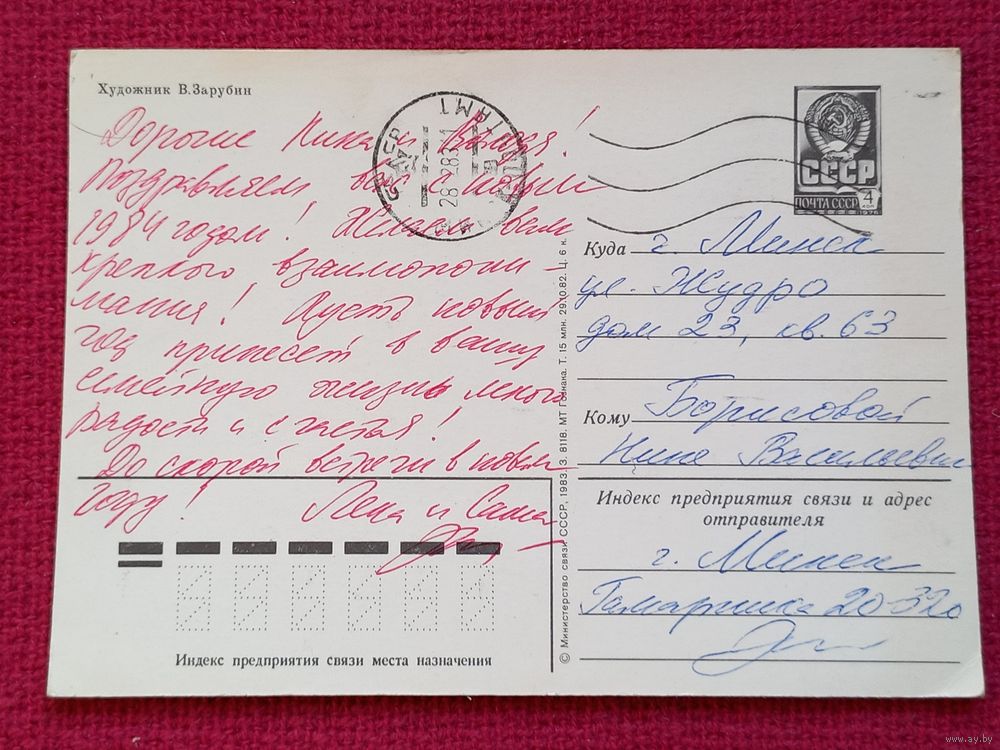 Художник В.Зарубин
Дорогие Нина и Володя!
Поздравляем вас с новым
1984 годом! Желаем вам
крепкого взаимопони-
мания! Пусть новый
год принесёт в вашу
семейную жизнь много
радости и счастья!
До скорой встречи в новом
году! Лена и Саша
Индекс предприятия связи места назначения
© Министерство связи СССР, 1983. З. 8118. МТ Гознака. Т. 15 млн. 29.10.82. Ц. 6 к.
СССР
4
КОП
ПОЧТА СССР
1976
Куда г. Минск
ул. Жудро
дом 23, кв. 63
Кому Борисовой
Нине Васильевне
Индекс предприятия связи и адрес
отправителя
г. Минск
Гамарника 20-320
www.ay.by